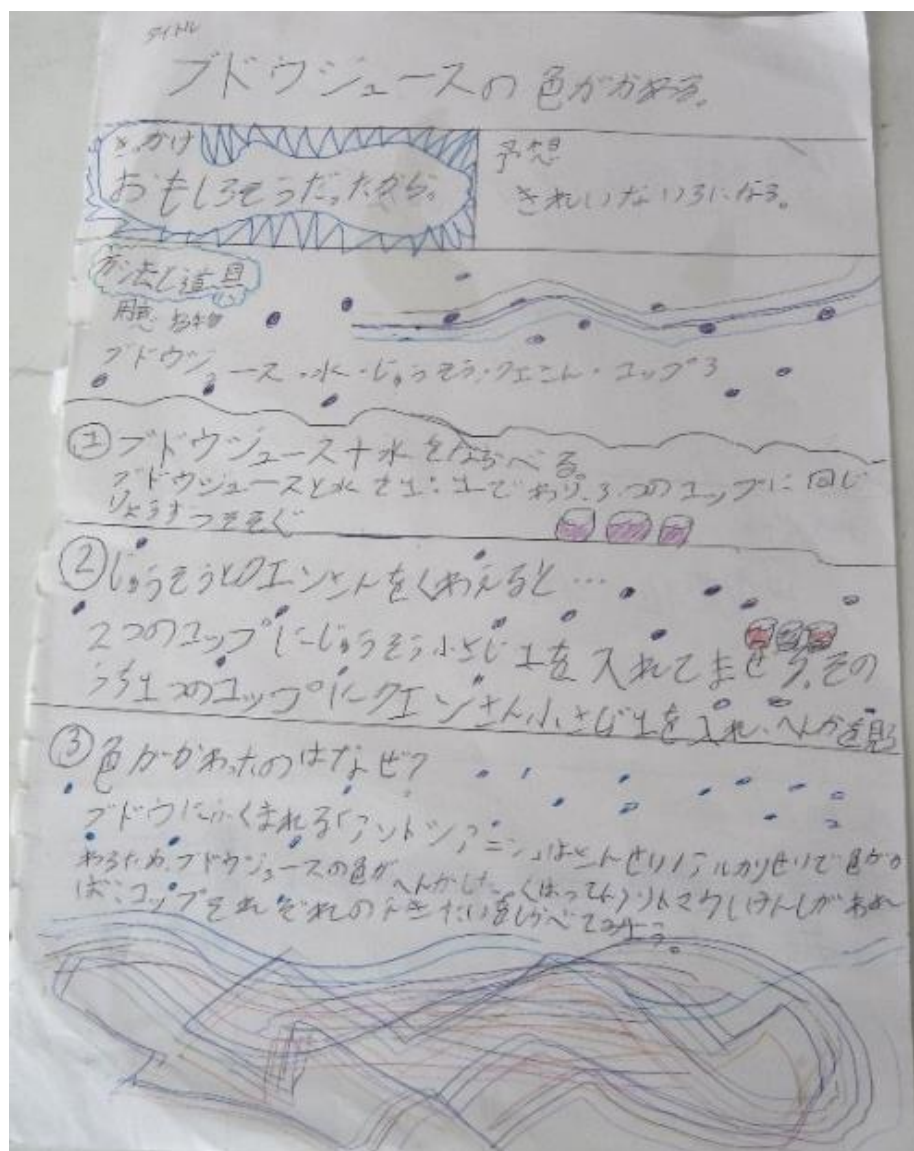 タイトル
ブドウジュースの色がかわる。
きっかけ
おもしろそうだったから。
予想
きれいないろになる。
方法し道具
用意 する物
ブドウジュース・水・じゅうそう・クエンさん・コップ3
①ブドウジュース+水をならべる。
ブドウジュースと水を1:1でわり、3つのコップに同じ
りょうずつそそぐ
②じゅうそうとクエンさんをくわえると…
2つのコップにじゅうそう小さじ1を入れてまぜる。その
うち1つのコップにクエンさん小さじ1を入れ、へんかを見る
③色がかわったのはなぜ?
ブドウにふくまれる「アントシアニン」はさんせい/アルカリせいで色がか
わるため、ブドウジュースの色がへんかした。(はってん)リトマスしけんしがあれ
ば、コップそれぞれのえきたいをしらべてみよう。